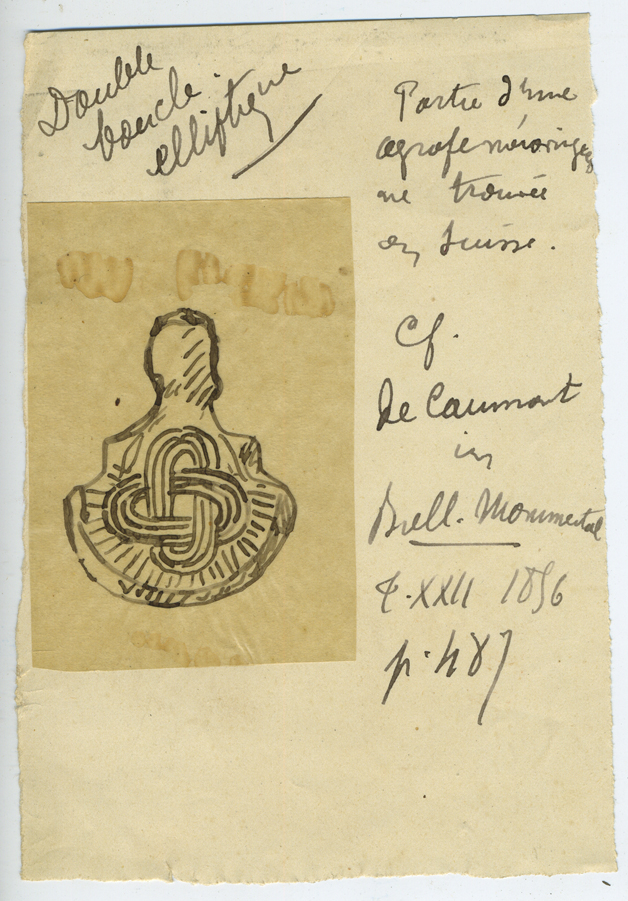 Double
boucle.
elliptique
Partie d'une
agrafe mérovingien
ne trouvée
en Suisse.
Cf.
De Caumont
in
Bull. Monumental
t. XXII 1856
p. 487